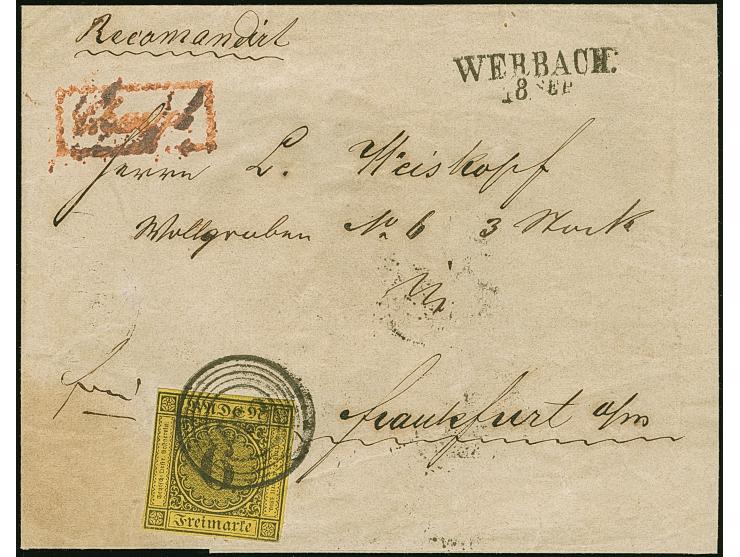 Recomandirt
WERBACH.
18 SEP
Herrn L. Weiskopf
Wollgraben No 6 3 Stock
in
frei
Frankfurt a/m
BADEN
Freimarke